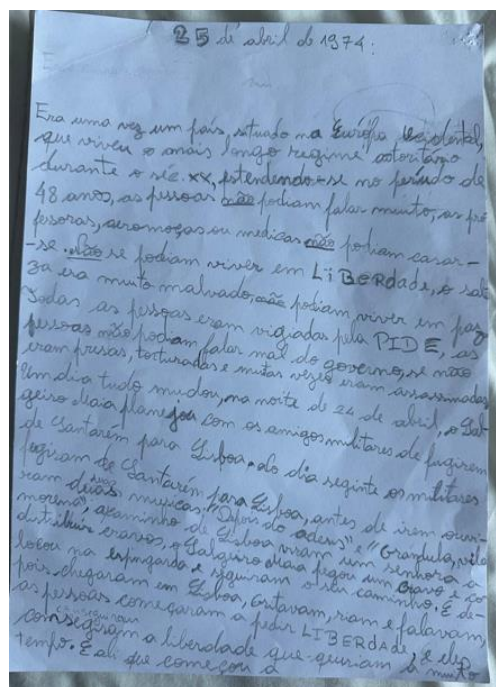 25 de abril de 1974:
Era uma vez um país, situado na Európa Ocidental,
que viveu o mais longo regime autoritário
durante o séc. XX, estendendo-se no período de
48 anos, as pessoas não podiam falar muito, as pro
fesoras, aeromoças ou médicas não podiam casar-
-se. Não se podiam viver em LiBERdade, o sala
za era muito malvado, não podiam, viver em paz
Todas as pessoas eram vigiadas pela PIDE, as
pessoas não podiam falar mal do governo, se não
eram presas, torturadas e muitas vezes eram assassinadas
Um dia tudo mudou, na noite de 24 de abril, o Sal
geiro Maia planejou com os amigos militares de fugirem
de Santarém para Lisboa. do dia seginte os militares
fugiram de Santarém para Lisboa, antes de irem ouvi-
ram duas musicas: "Depois do adeus" e "Grandula, vila
morena", a caminho de Lisboa viram um senhora a
distribuir cravos, o Salgueiro Maia pegou um cravo e co
locou na espingarda e seguiram seu caminho. E de-
pois chegaram em Lisboa, Gritavam, riam e falavam,
as pessoas começaram a pedir LIBERdAde, e eles
conseguiram
a liberdade que queriam à muito
tempo. E ali que começou a